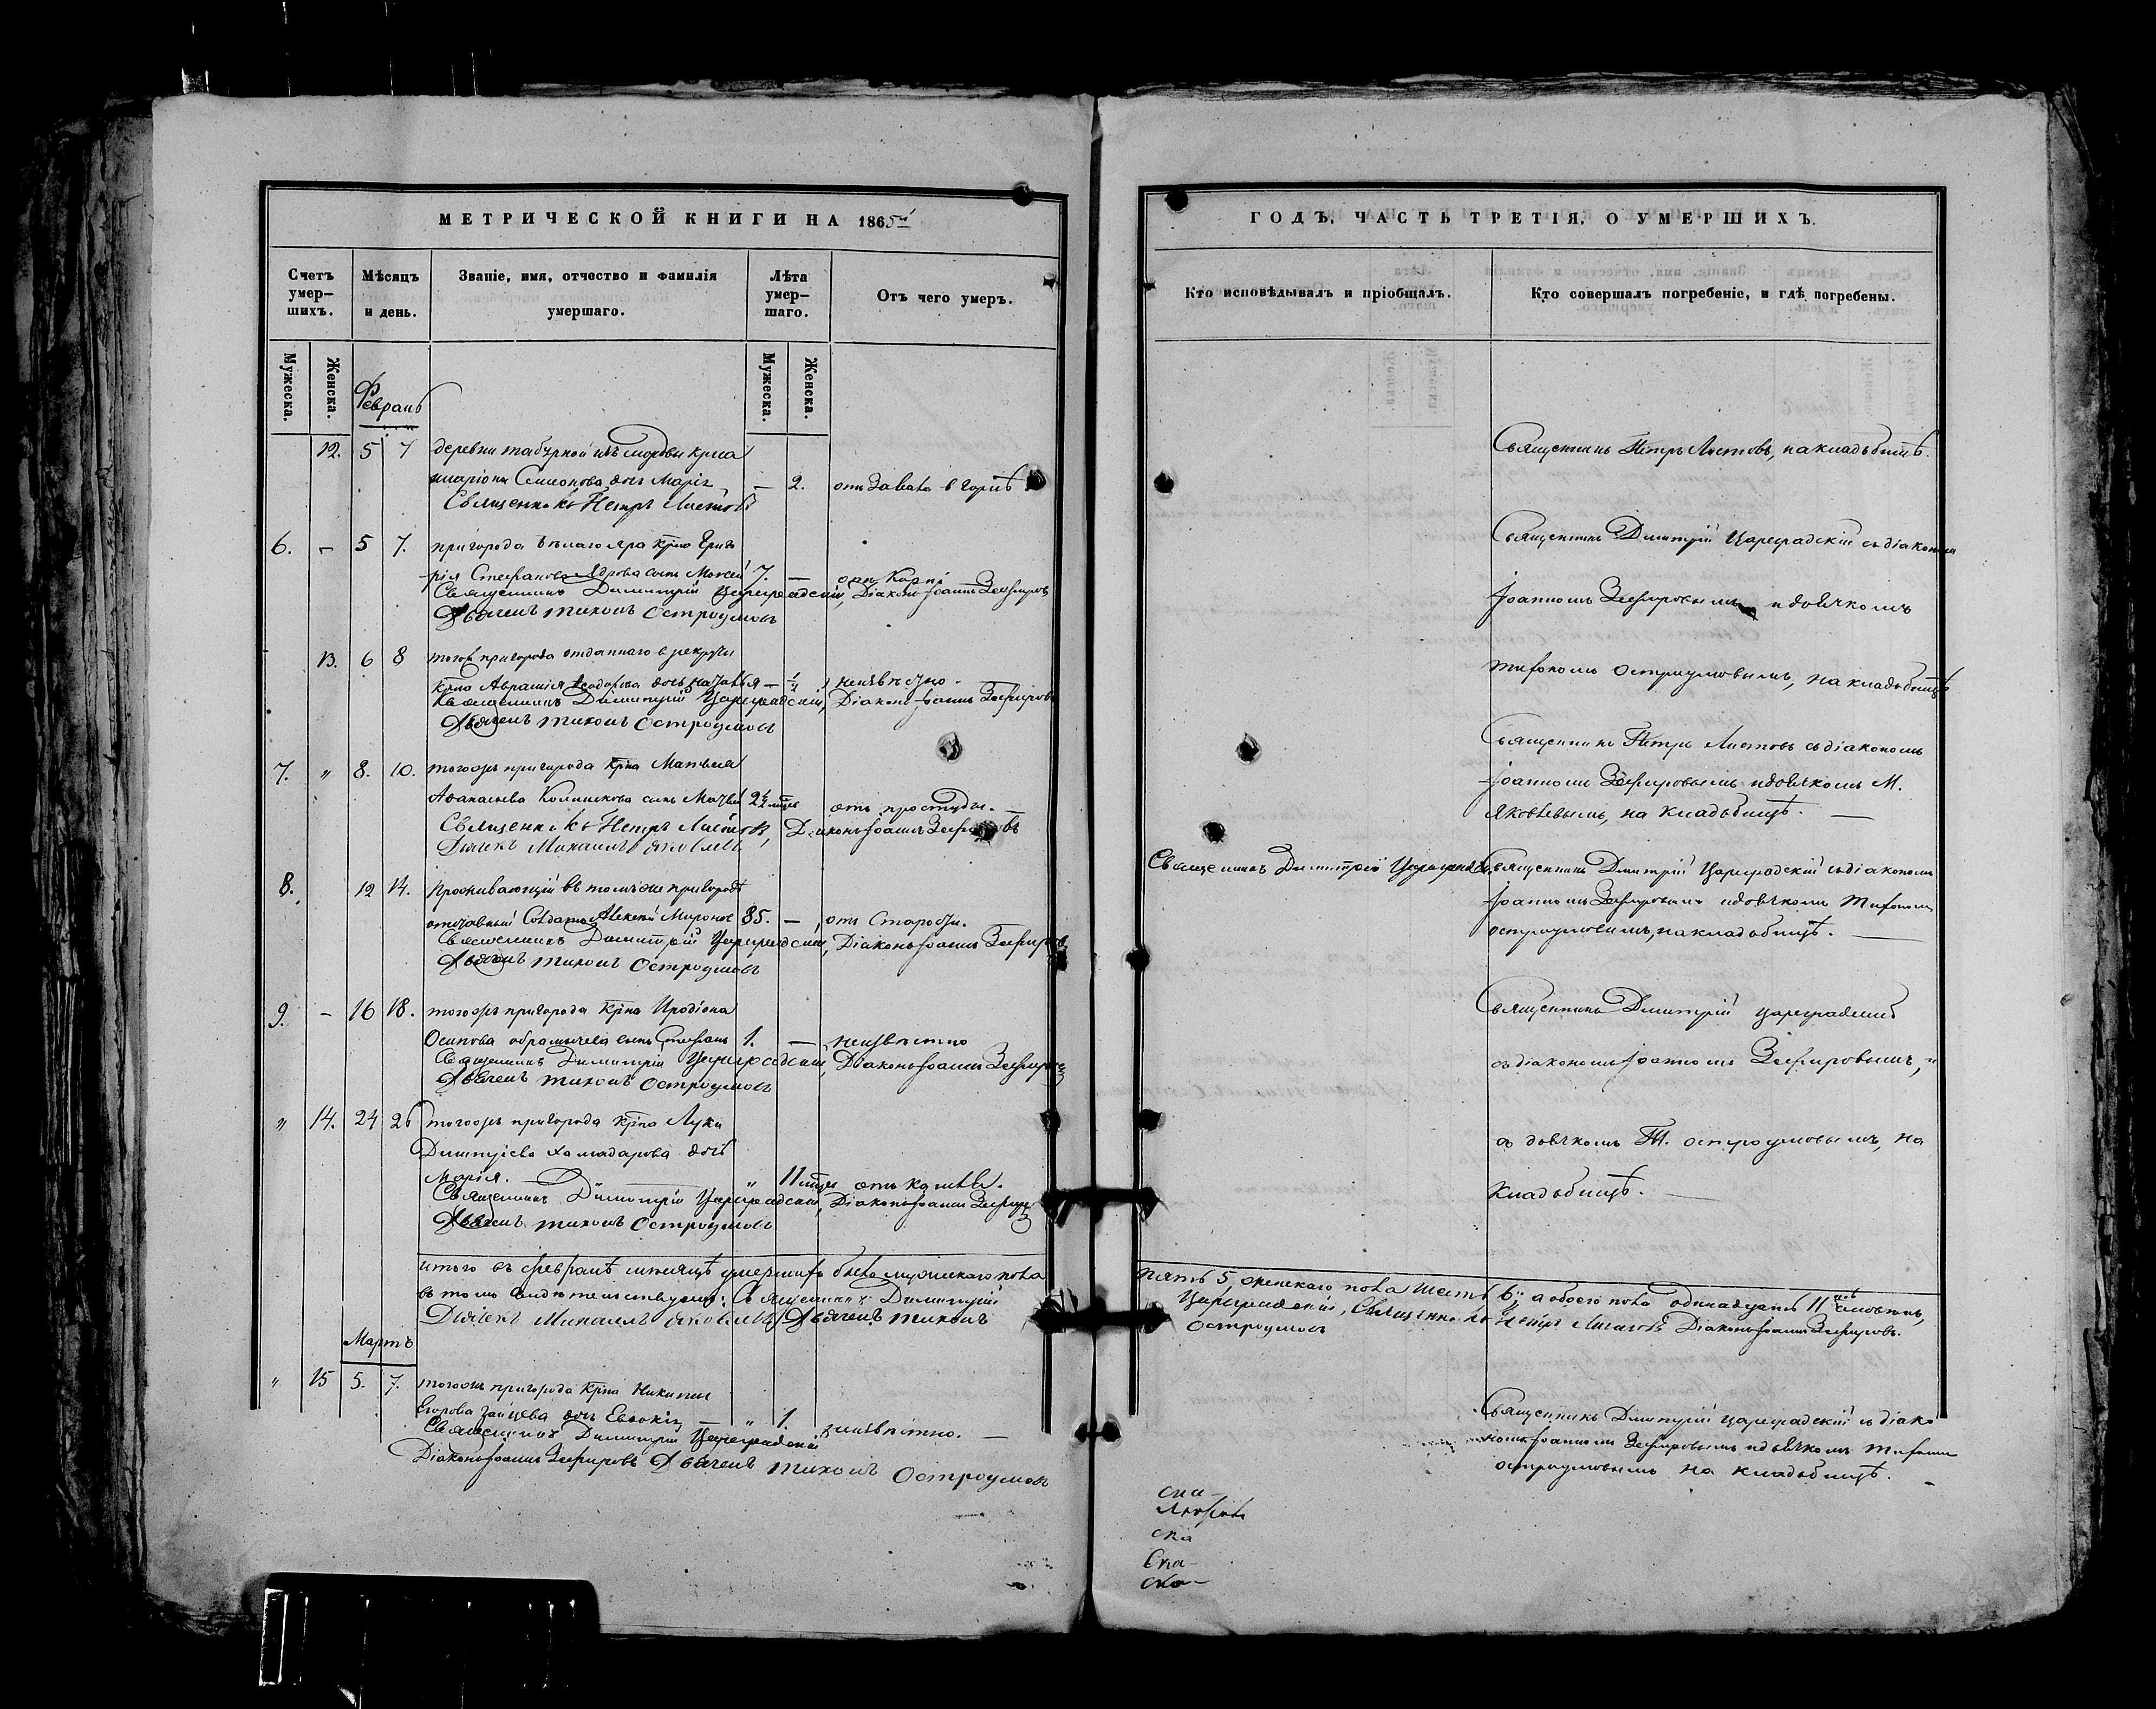 МЕТРИЧЕСКОЙ КНИГИ НА 1865й
Счетъ умер-шихъ.
Мѣсяцъ и день.
Званіе, имя, отчество и фамилія умершаго.
Лѣта умер-шаго.
Отъ чего умеръ.
Мужеска.
Женска.
Мужеска.
Женска.
Февраль
12. 5 7 деревни мордвы крна
Семионова дочь Марія — 2. отъ
Священникъ Петръ Листовъ
6. — 5 7. пригорода Бѣлаго яра крна Григо
рія Стефанова сынъ Моисей 7. — отъ Кори
Священникъ Димитрій Цареградскій, Діаконъ Іоаннъ Зефировъ
Дьячекъ Тихонъ Остроумовъ
13. 6 8 тогоже пригорода отданнаго в рекруты
крна дочь Наталья — 1/2 неизвѣстно.
Священникъ Димитрій Цареградскій, Діаконъ Іоаннъ Зефировъ
Дьячекъ Тихонъ Остроумовъ
7. „ 8. 10. тогожъ пригорода крна Матвея
Афанасьева сынъ 2 1/2 отъ простуды. —
Священникъ Петръ Листовъ, Діаконъ Іоаннъ Зефировъ
Дьячекъ Михаилъ Яковлевъ
8. 12 14. проживающій въ томъ же пригородѣ
отставный Солдатъ Алексѣй Миронов 85. — отъ Старости.
Священникъ Димитрій Цареградскій, Діаконъ Іоаннъ Зефировъ
Дьячекъ Тихонъ Остроумовъ
9. — 16 18. тогожъ пригорода крна Иродіона
Осипова сынъ Стефанъ 1. — неизвѣстно
Священникъ Димитрій Цареградскій, Діаконъ Іоаннъ Зефировъ
Дьячекъ Тихонъ Остроумовъ
„ 14. 24 26 тогожъ пригорода крна Луки
Димитріева дочь
Марія. — „ 11 мцы отъ кашля.
Священникъ Димитрій Цареградскій, Діаконъ Іоаннъ Зефиров
Дьячекъ Тихонъ Остроумовъ
итого въ февралѣ мѣсяцѣ умершихъ было мужескаго пола
въ томъ свидѣтельствуемъ: Священникъ Димитрій
Дьячекъ Михаилъ Яковлевъ, Дьячекъ Тихонъ
Мартъ
„ 15 5. 7. тогожъ пригорода крна Никиты
Егорова Зайцева дочь Евдокія — „ 1. неизвѣстно. —
Священникъ Димитрій Цареградскій
Діаконъ Іоаннъ Зефировъ Дьячекъ Тихонъ Остроумовъ
ГОДЪ, ЧАСТЬ ТРЕТІЯ, О УМЕРШИХЪ.
Кто исповѣдывалъ и пріобщалъ.
Кто совершалъ погребеніе, и гдѣ погребены.
Священникъ Петръ Листовъ, на кладбищѣ.
Священникъ Димитрій Цареградскій съ діакономъ
Іоанномъ Зефировымъ и дьячкомъ
Тихономъ Остроумовымъ, на кладбищѣ
Священникъ Петръ Листовъ съ діакономъ
Іоанномъ Зефировымъ и дьячкомъ М.
Яковлевымъ, на кладбищѣ. —
Священникъ Димитрій Цареградскій
Священникъ Димитрій Цареградскій съ діакономъ
Іоанномъ Зефировымъ и дьячкомъ Тихономъ
Остроумовымъ, на кладбищѣ. —
Священникъ Димитрій Цареградскій
съ діакономъ Іоанномъ Зефировымъ, и
съ дьячкомъ Т. Остроумовымъ, на
кладбищѣ. —
пять 5, женскаго пола шесть 6, а обоего пола одинадцать 11 человѣкъ,
Цареградскій, Священникъ Петръ Листовъ Діаконъ Іоаннъ Зефировъ.
Остроумовъ
Священникъ Димитрій Цареградскій съ діако
номъ Іоанномъ Зефировымъ и дьячкомъ Тихономъ
Остроумовымъ на кладбищѣ. —